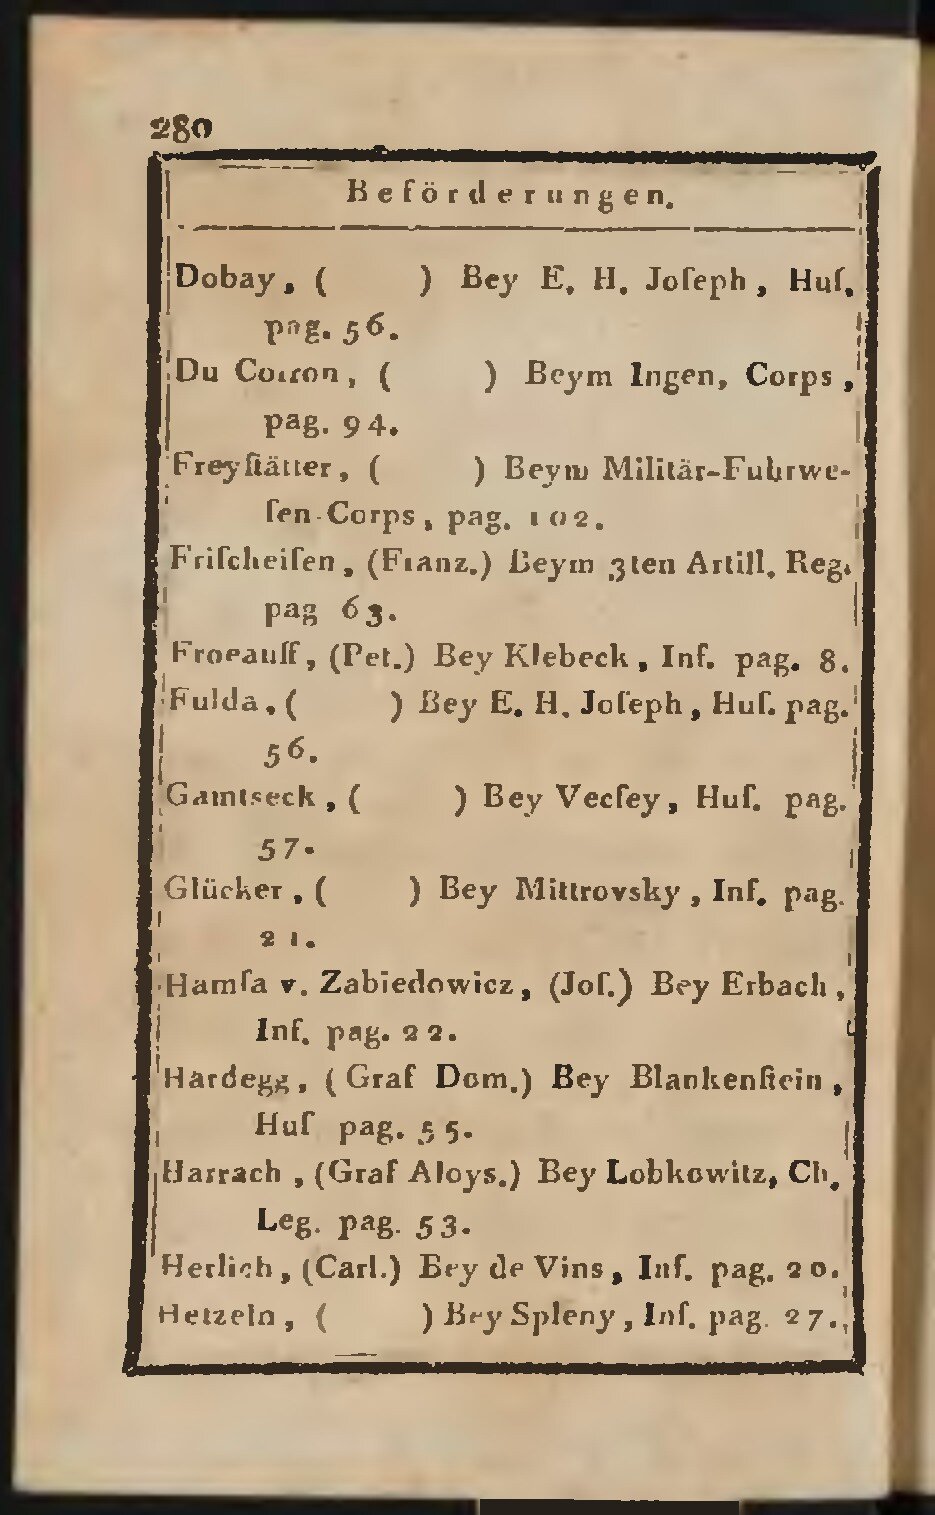 280
Beförderungen.
Dobay, ( ) Bey E. H. Joſeph, Huſ.
pag. 56.
Du Coiron, ( ) Beym Ingen, Corps,
pag. 94.
Freyſtätter, ( ) Beym Militär-Fuhrwe-
ſen-Corps, pag. 102.
Friſcheiſen, (Franz.) Beym 3ten Artill. Reg.
pag 63.
Froeauff, (Pet.) Bey Klebeck, Inf. pag. 8.
Fulda, ( ) Bey E. H. Joſeph, Huſ. pag.
56.
Gamtseck, ( ) Bey Vecſey, Huſ. pag.
57.
Glücker, ( ) Bey Mittrovsky, Inf. pag.
21.
Hamſa v. Zabiedowicz, (Joſ.) Bey Erbach,
Inf. pag. 22.
Hardegg, (Graf Dom.) Bey Blankenſtein,
Huſ pag. 55.
Harrach, (Graf Aloys.) Bey Lobkowitz, Ch.
Leg. pag. 53.
Herlich, (Carl.) Bey de Vins, Inf. pag. 20.
Hetzeln, ( ) Bey Spleny, Inf. pag. 27.